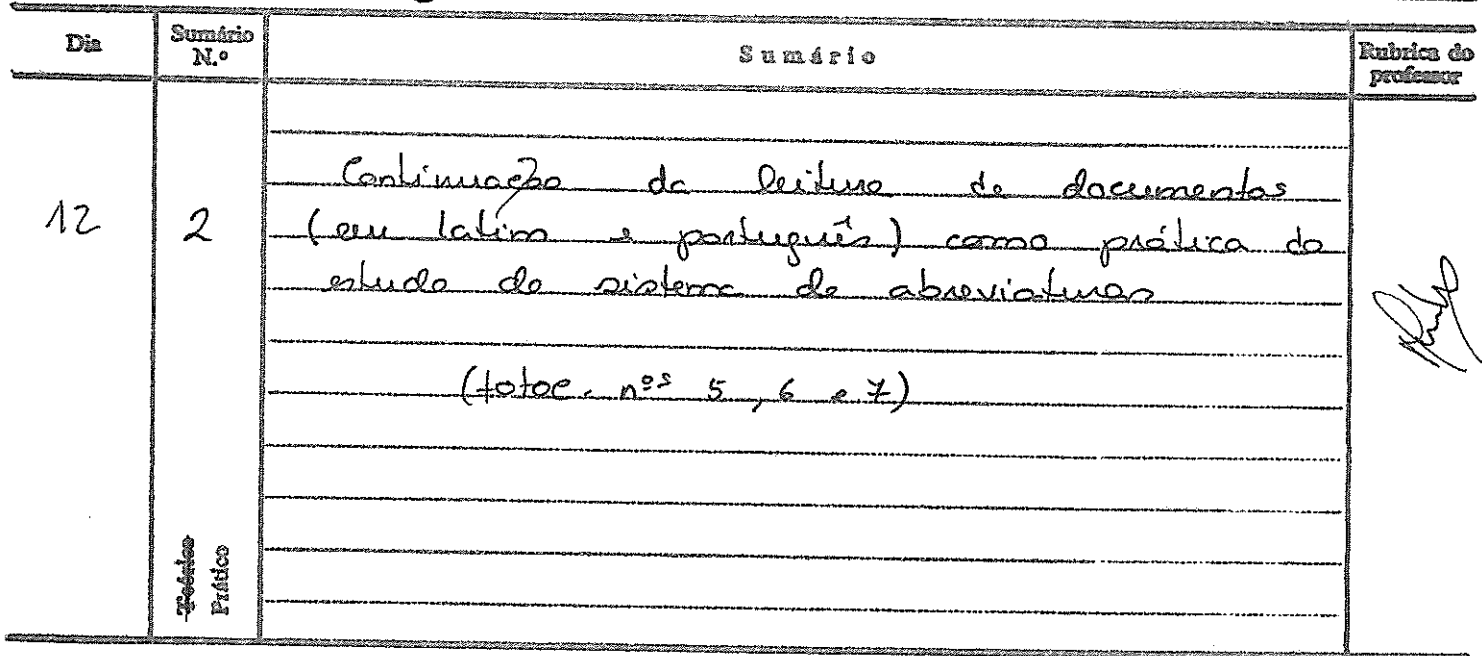 Dia
Sumário N.º
Sumário
Rubrica do professor
12
2
Continuação da leitura de documentos
(em latim e português) como prática do
estudo do sistema de abreviaturas
(fotoc. nºs 5, 6 e 7)
Teórico
Prático